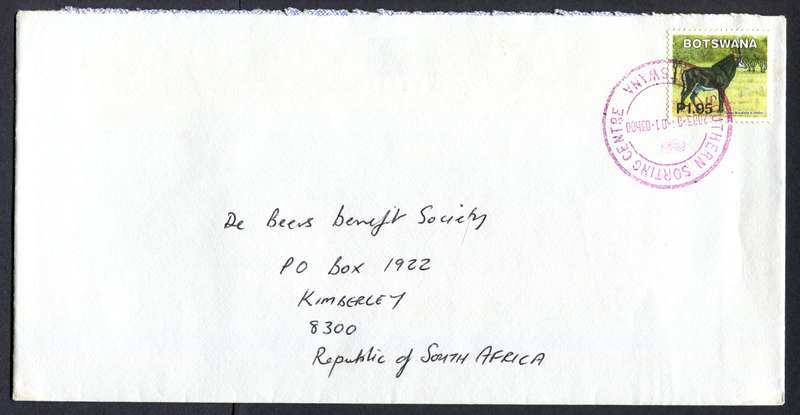 BOTSWANA
P1.95
SOUTHERN SORTING CENTRE
De Beers Benefit Society
PO Box 1922
KIMBERLEY
8300
Republic of SOUTH AFRICA